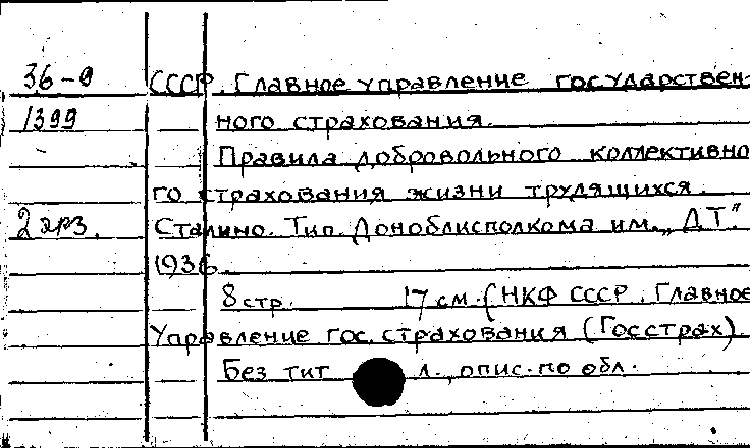 36-9 СССР. Главное управление государствен-
1399 ного страхования.
Правила добровольного коллективно
го страхования жизни трудящихся.
2 экз. Сталино. Тип. Доноблисполкома им. „ДТ."
1936.
8 стр. 17 см. (НКФ СССР. Главное
Управление гос. страхования (Госстрах)
Без тит л., опис. по обл.